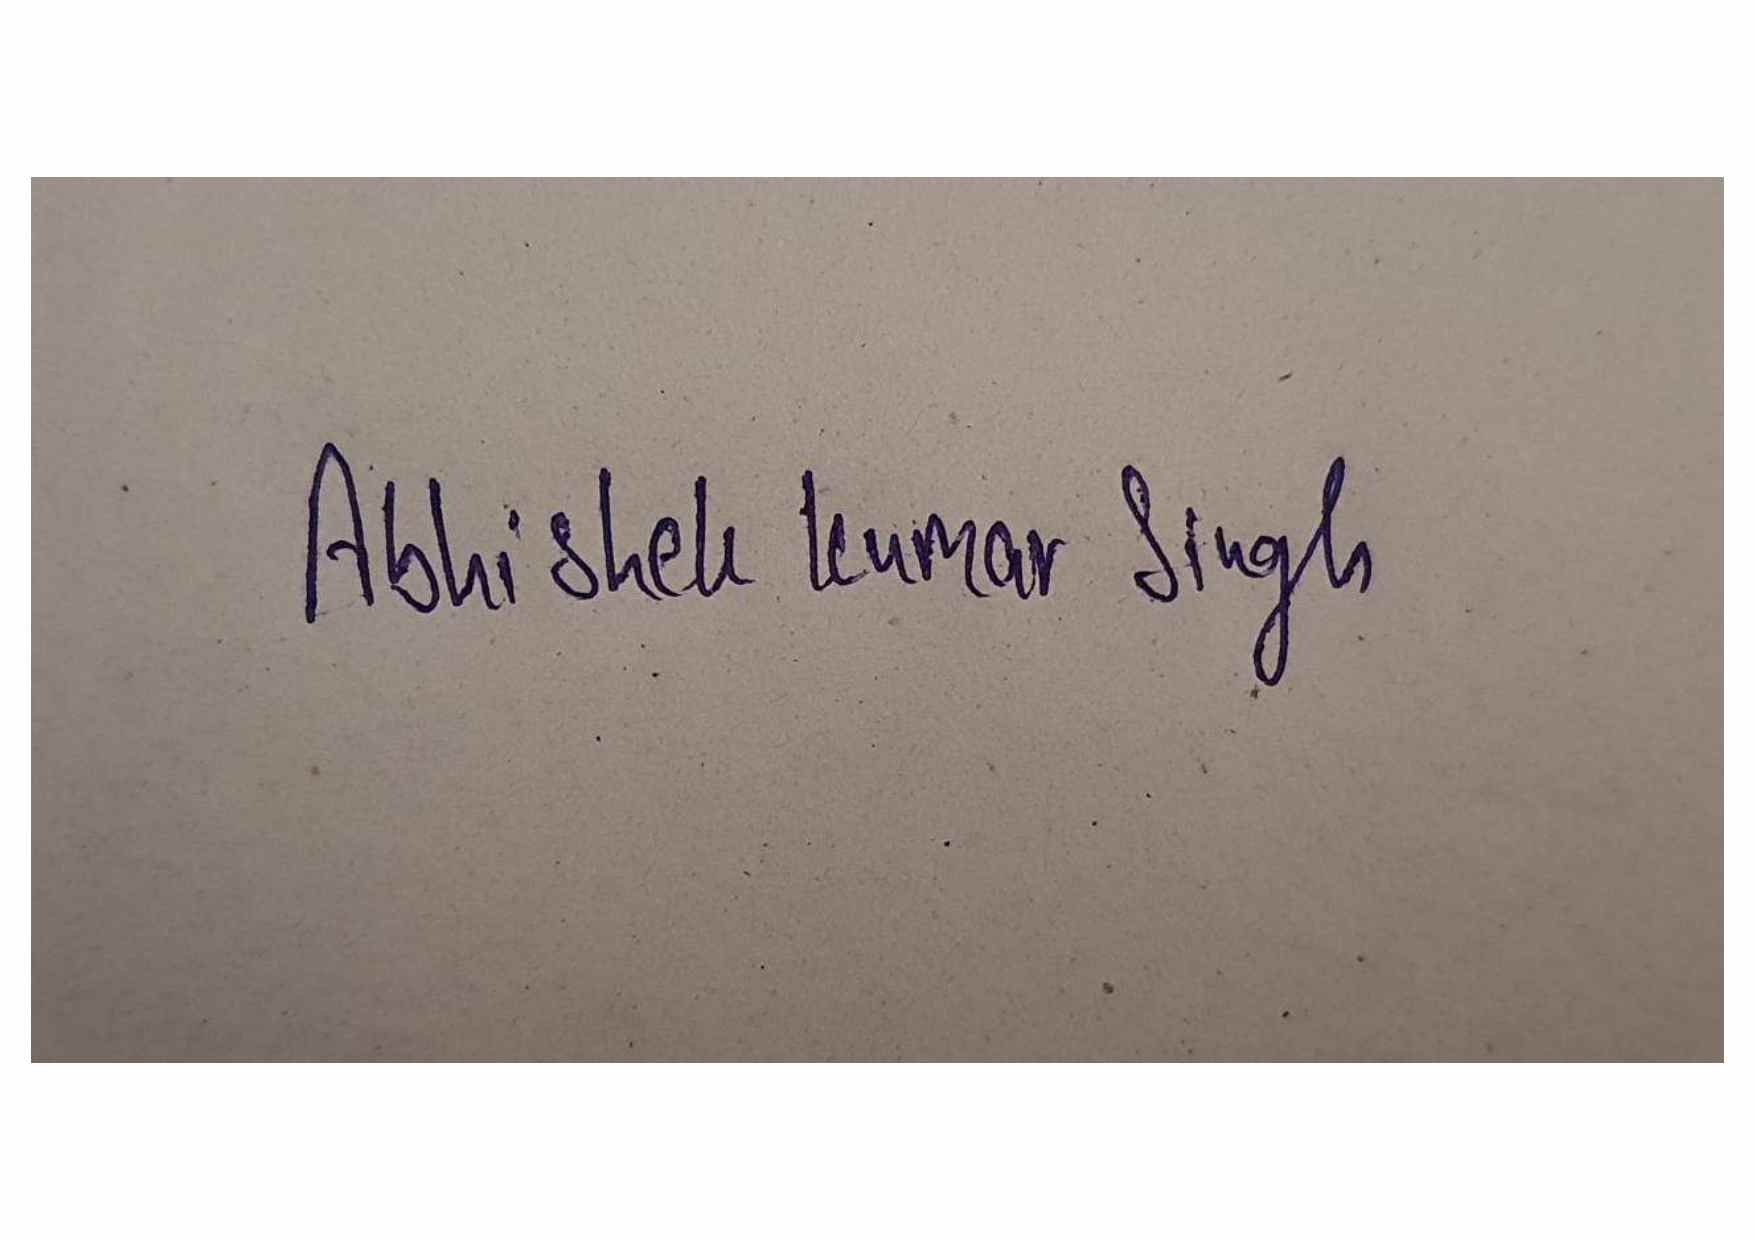 Abhishek kumar Singh